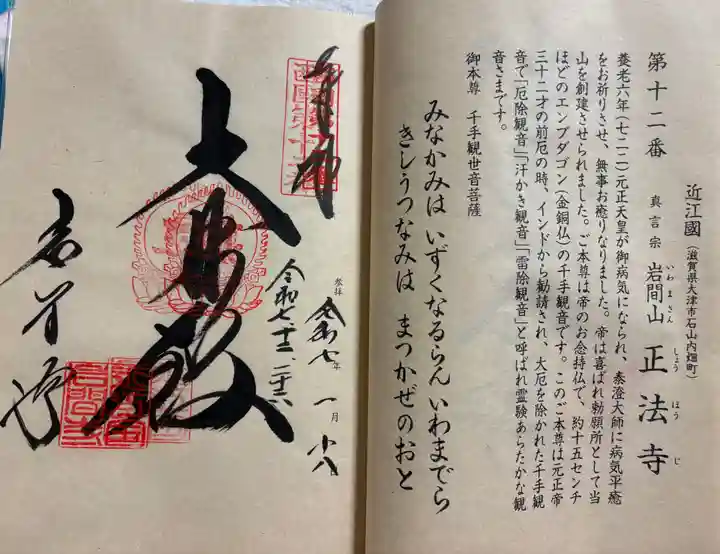 近江國（滋賀県大津市石山内畑町）
第十二番 真言宗 岩間山 正法寺
いわまさん しょうほうじ
養老六年（七二二）元正天皇が御病気になられ、泰澄大師に病気平癒
をお祈りさせ、無事お癒りなりました。帝は喜ばれ勅願所として当
山を創建させられました。ご本尊は帝のお念持仏で、約十五センチ
ほどのエンブダゴン（金銅仏）の千手観音です。このご本尊は元正帝
三十二才の前厄の時、インドから勧請され、大厄を除かれた千手観
音で「厄除観音」「汗かき観音」「雷除観音」と呼ばれ霊験あらたかな観
音さまです。
御本尊 千手観世音菩薩
みなかみは いずくなるらん いわまでら
きしうつなみは まつかぜのおと
奉拝
西國第十二番
参拝 令和七年 一月 十八
大悲殿
岩間寺